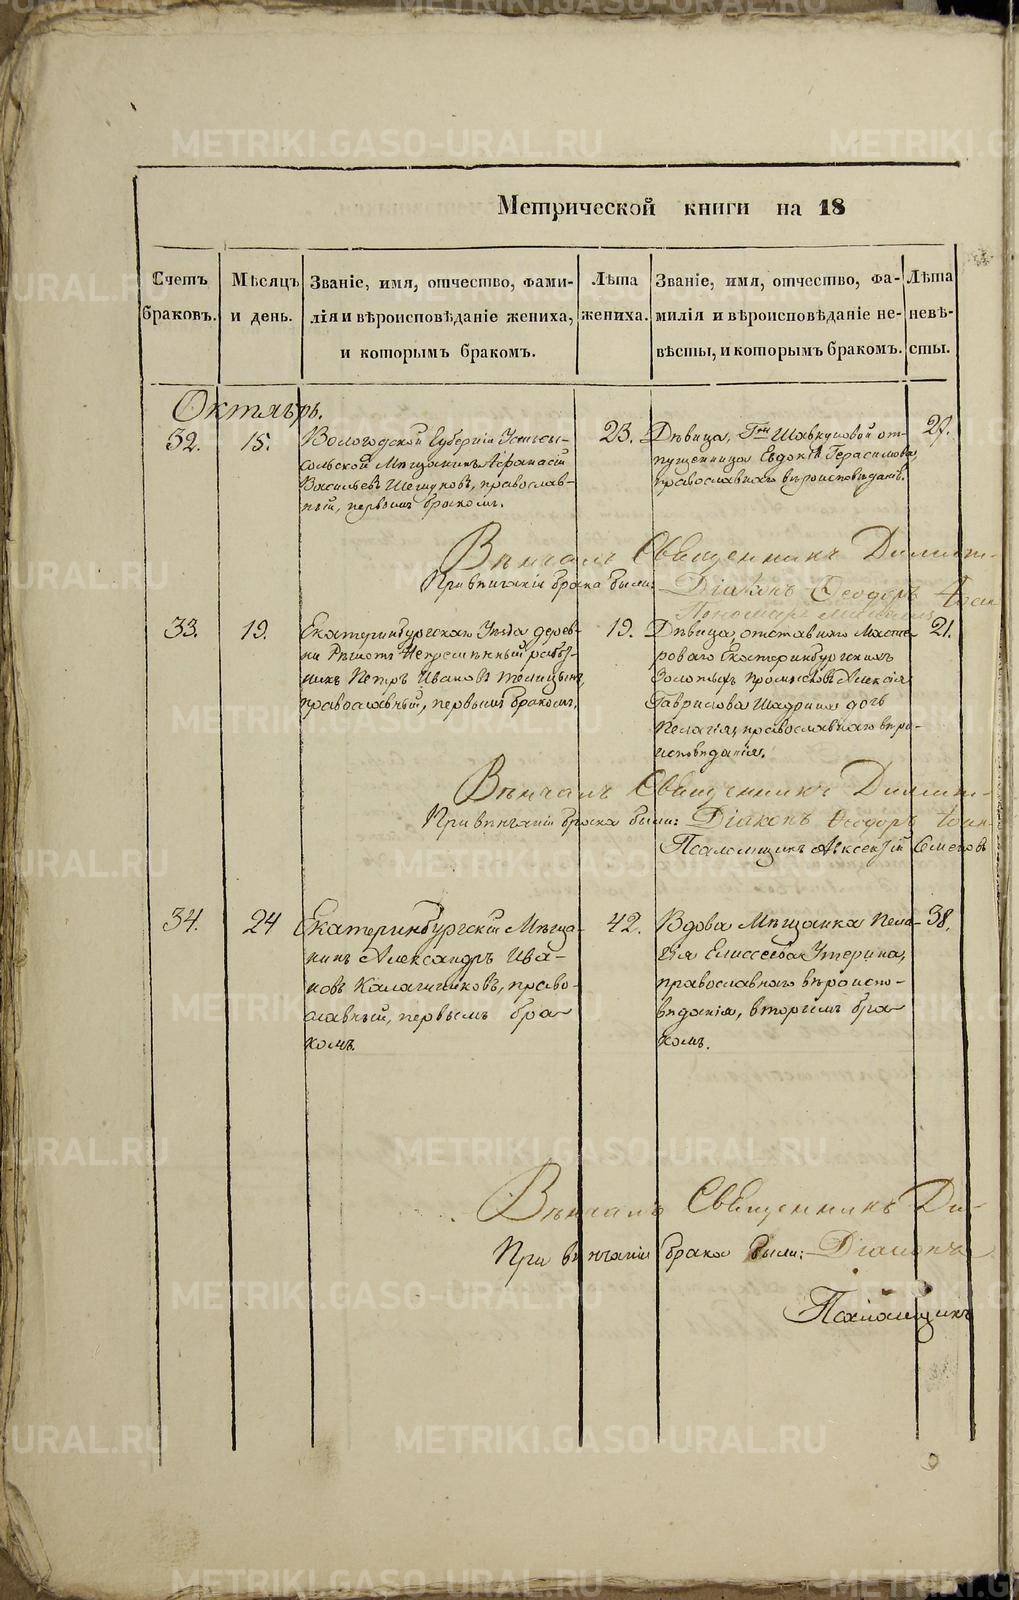 Метрической книги на 18
Счетъ браковъ.
Мѣсяцъ и день.
Званіе, имя, отчество, фами-
лія и вѣроисповѣданіе жениха,
и которымъ бракомъ.
Лѣта
жениха.
Званіе, имя, отчество, фа-
милія и вѣроисповѣданіе не-
вѣсты, и которымъ бракомъ.
Лѣта
невѣ-
сты.
Октябрь.
32.
15.
Вологодской Губерніи Устьсы-
сольской Мѣщанинъ Афанасій
Васильевъ Шешуковъ, православ-
ный, первымъ бракомъ.
23.
Дѣвица, Гжи Шавкуновой от-
пущенница Евдокія Герасимова,
православнаго вѣроисповѣданія.
27.
Вѣнчалъ Священникъ Димит-
При вѣнчаніи брака были: Діаконъ Ѳеодоръ
Пономарь
33.
19.
Екатеринбургскаго Уѣзда дерев-
ни Рѣшотъ Непремѣнный работ-
никъ Петръ Ивановъ
православный, первымъ бракомъ.
19.
Дѣвица, отставнаго Масте-
роваго Екатеринбургскихъ
Золотыхъ Промысловъ Алексія
Гаврилова Шадрина дочь
Пелагія, православнаго вѣро-
исповѣданія.
21.
Вѣнчалъ Священникъ Димит-
При вѣнчаніи брака были: Діаконъ Ѳеодоръ
Псаломщикъ Алексѣй Семеновъ
34.
24
Екатеринбургскій Мѣща-
нинъ Александръ Ива-
новъ Калашниковъ, право-
славный, первымъ бра-
комъ.
42.
Вдова Мѣщанка Пела-
гія Елисеева Утерина,
православнаго вѣроиспо-
вѣданія, вторымъ бра-
комъ.
38.
Вѣнчалъ Священникъ Ди-
При вѣнчаніи брака были: Діаконъ
Псаломщикъ
METRIKI.GASO-URAL.RU